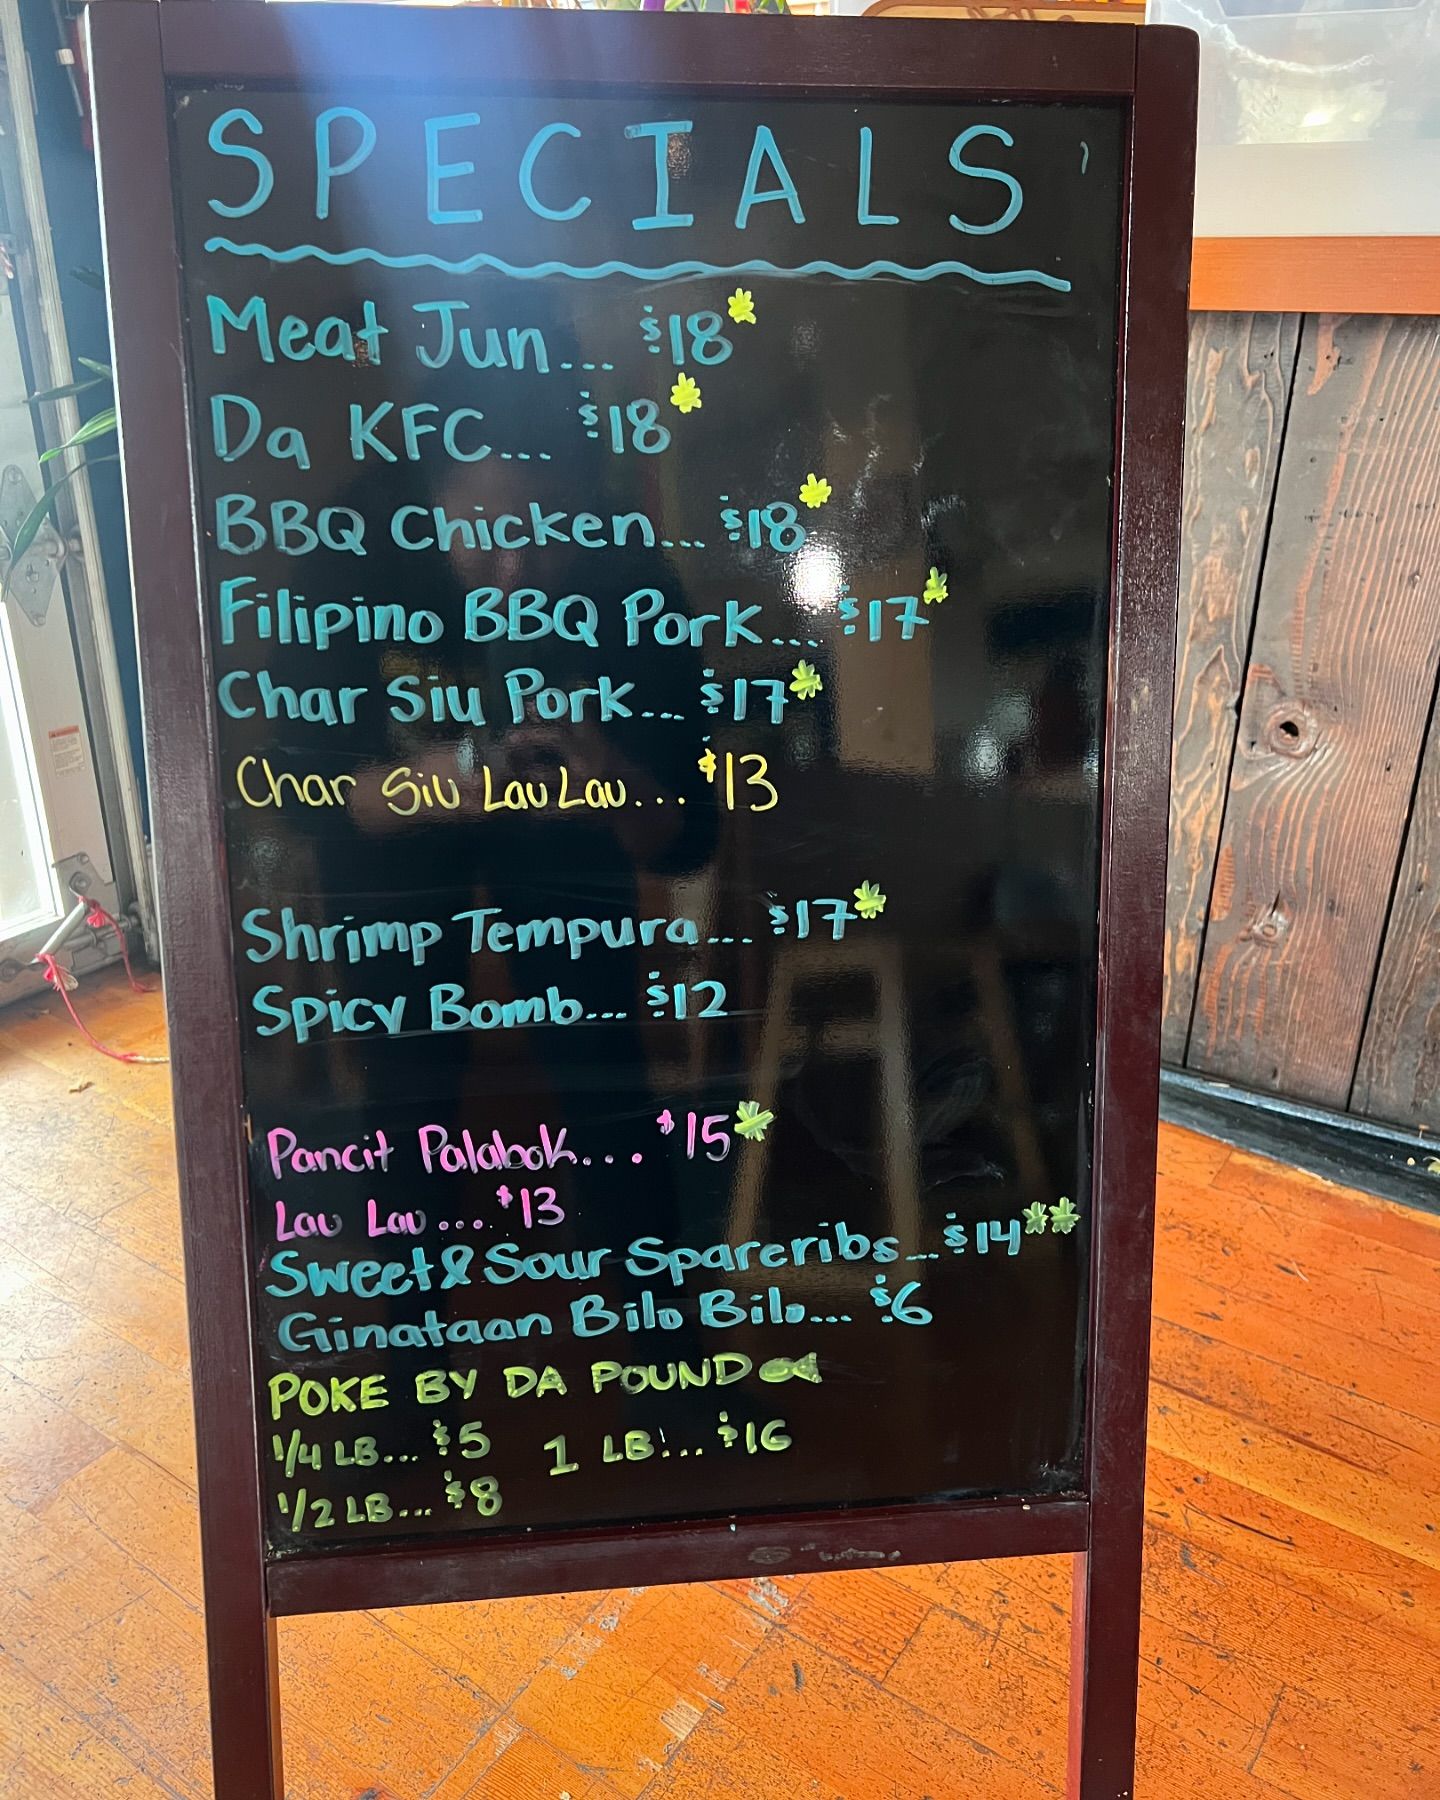 SPECIALS
Meat Jun... $18*
Da KFC... $18*
BBQ Chicken... $18*
Filipino BBQ Pork... $17*
Char Siu Pork... $17*
Char Siu Lau Lau... $13
Shrimp Tempura... $17*
Spicy Bomb... $12
Pancit Palabok... $15*
Lau Lau... $13
Sweet & Sour Spareribs... $14**
Ginataan Bilo Bilo... $6
POKE BY DA POUND
1/4 LB... $5 1 LB... $16
1/2 LB... $8